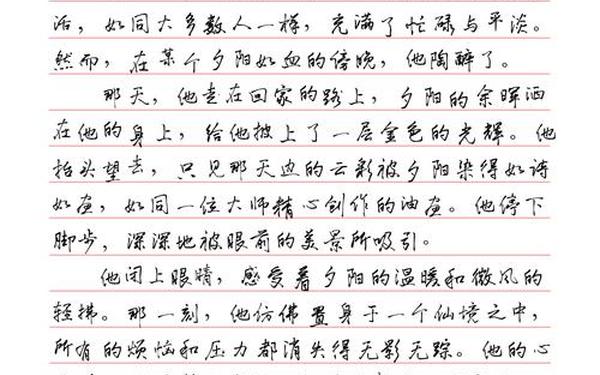 活，如同大多数人一样，充满了忙碌与平淡。
然而，在某个夕阳如血的傍晚，他陶醉了。
那天，他走在回家的路上，夕阳的余晖洒
在他的身上，给他披上了一层金色的光辉。他
抬头望去，只见那天边的云彩被夕阳染得如诗
如画，如同一位大师精心创作的油画。他停下
脚步，深深地被眼前的美景所吸引。
他闭上眼睛，感受着夕阳的温暖和微风的
轻拂。那一刻，他仿佛置身于一个仙境之中，
所有的烦恼和压力都消失得无影无踪。他的心